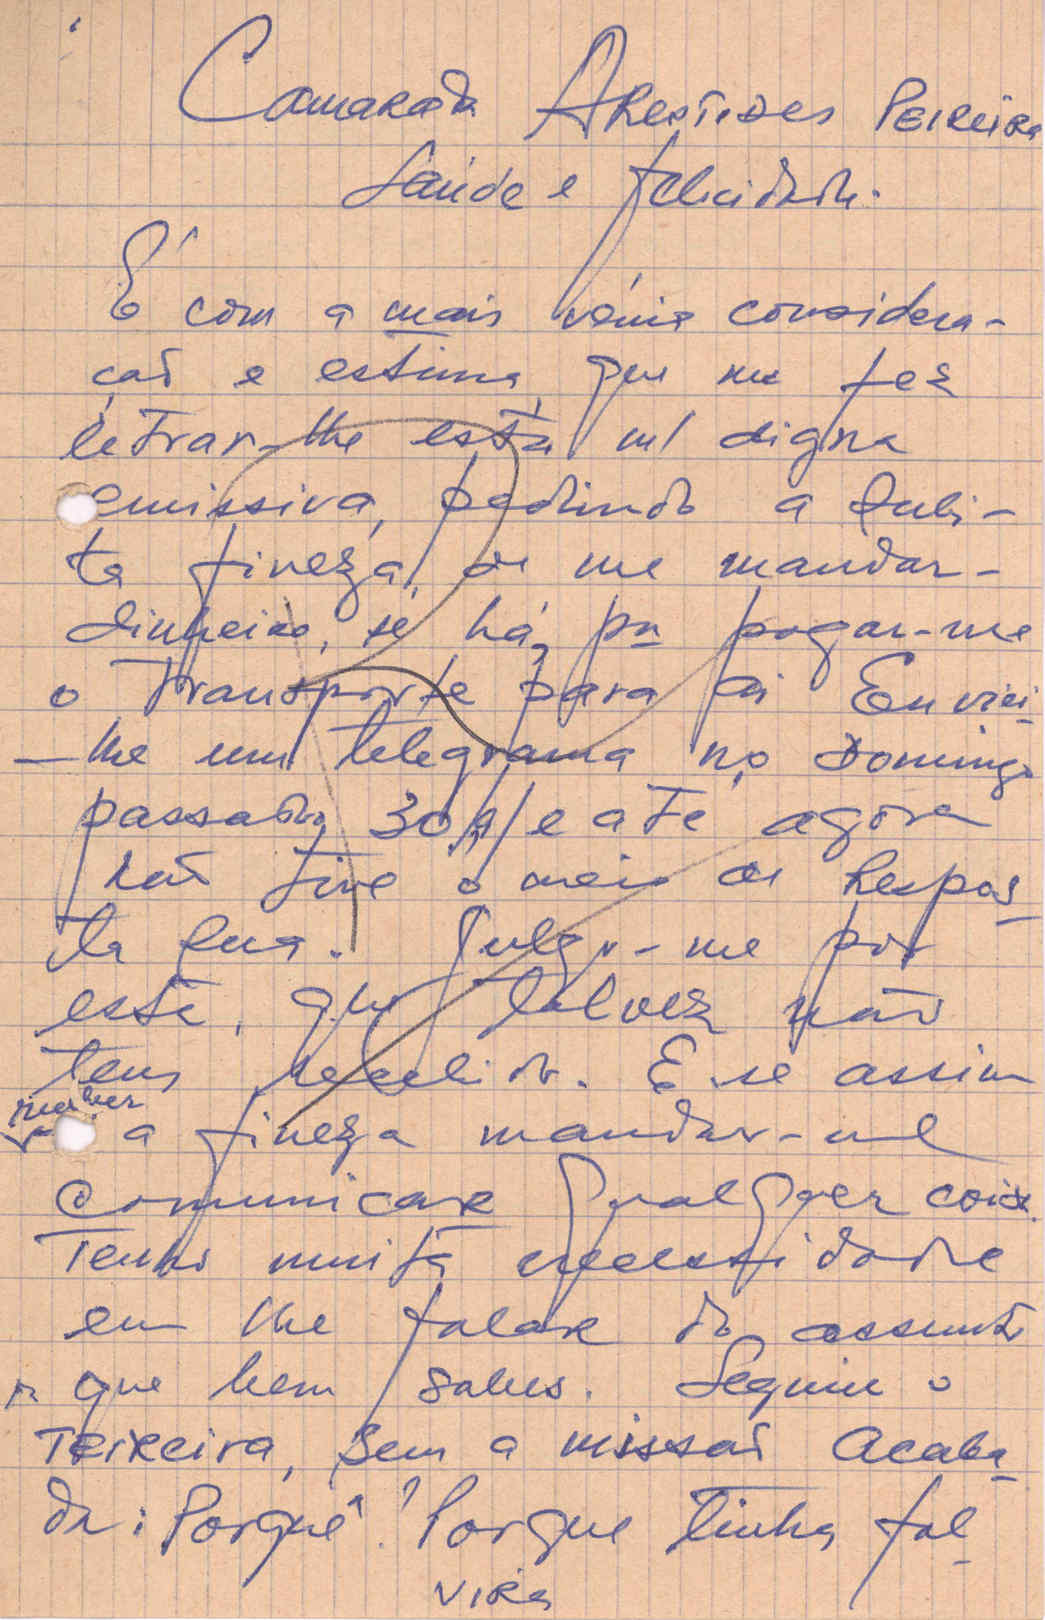 Camarada Arestides Pereira
Saúde e felicidade.
É com a mais vénia considera-
çaõ e estima, que me fez
letrar-lhe esta m/ digna
emissiva, pedindo a subi-
ta fineza, de me mandar-
dinheiro, se há, pa pagar-me
o Transporte para aí Enviei-
-lhe um telegrama no Domingo
passado, 30/9/ e aTé agora
naõ tive o meio de Respos-
ta sua. Julgo-me por
esta, que talvez não
tens recebido. E se assim
a fineza mandar-me
comunicar qualquer coisa.
Tenho muita necessidade
em lhe falar do assunto
que bem sabes. Seguiu o
Teixeira, sem a missaõ acaba-
da: Porquê? Porque tinha fal-
vira